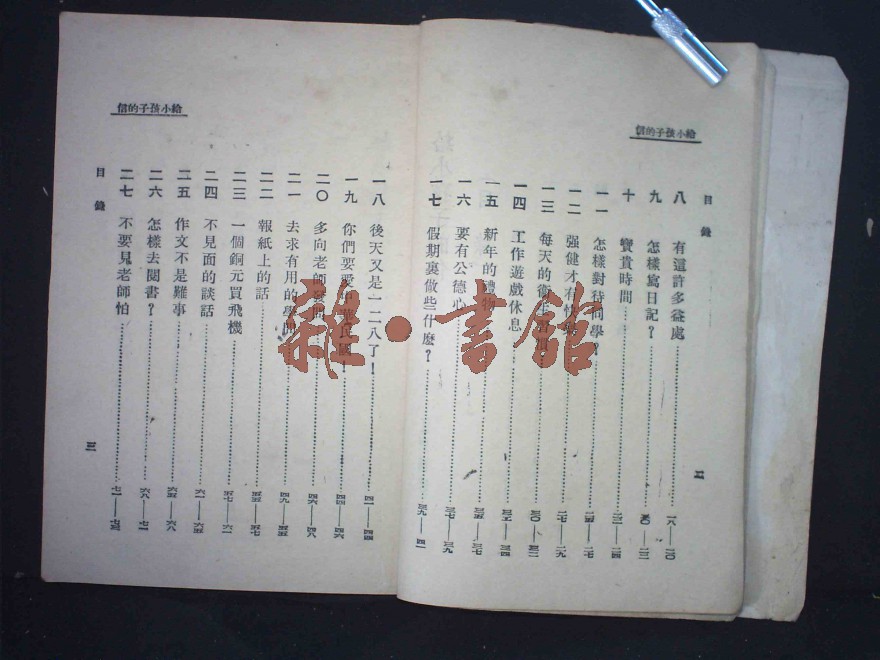 給小孩子的信
目錄
八 有這許多益處 一八——二〇
九 怎樣寫日記？ 二〇——二二
十 寶貴時間 二二——二四
一一 怎樣對待同學？ 二四——二七
一二 强健才有快 二七——二九
一三 每天的衛生習慣 三〇——三二
一四 工作遊戲休息 三二——三四
一五 新年的禮物 三五——三七
一六 要有公德心 三七——三九
一七 假期裏做些什麽？ 三九——四一
二
給小孩子的信
一八 後天又是一二八了！ 四一——四四
一九 你們要愛中華民國！ 四四——四六
二〇 多向老師發問 四六——四八
二一 去求有用的學問 四九——五五
二二 報紙上的話 五五——五七
二三 一個銅元買飛機 五七——六一
二四 不見面的談話 六一——六五
二五 作文不是難事 六五——六八
二六 怎樣去閱書？ 六八——七一
二七 不要見老師怕 七一——七三
目錄
三
雜·書館